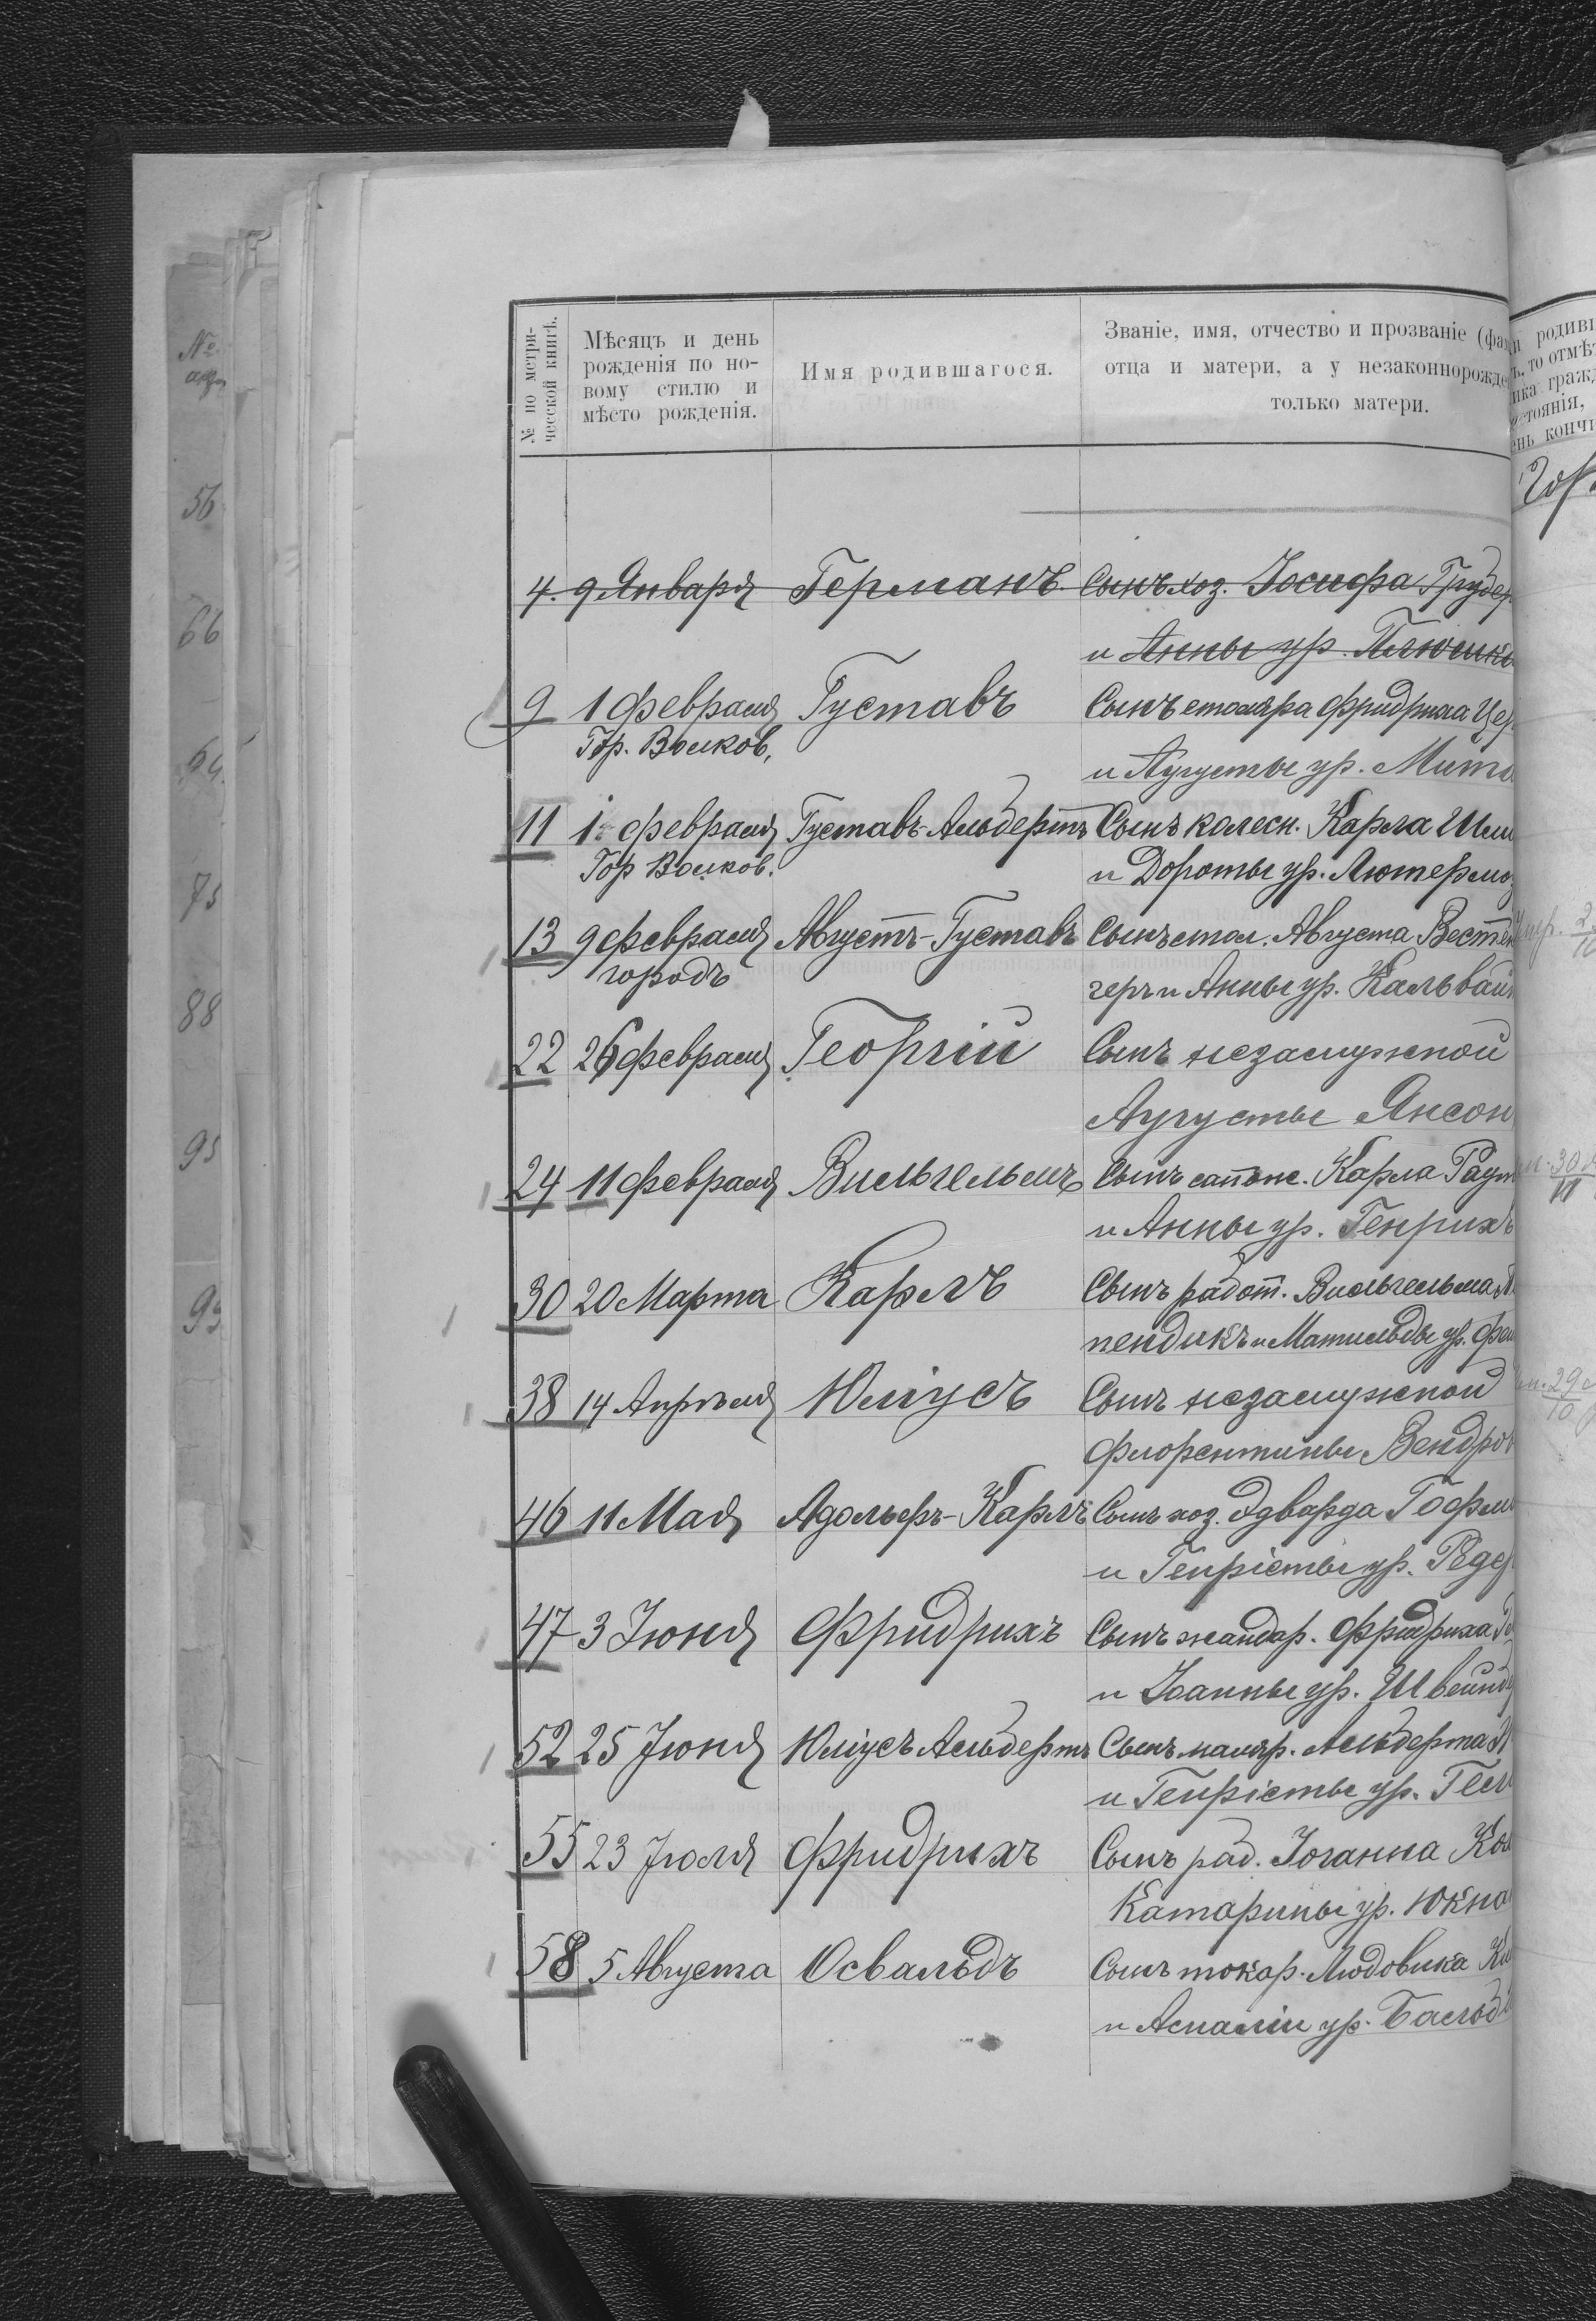 № по метри-
ческой книгѣ.
Мѣсяцъ и день
рожденія по но-
вому стилю и
мѣсто рожденія.
Имя родившагося.
Званіе, имя, отчество и прозваніе (фа
отца и матери, а у незаконнорожде
только матери.
4. 9 Января Германъ. Сынъ хоз. Іосифа Грудер
и Анны ур. Плюшкы
9 1 Февраля Густавъ Сынъ столяра Фридриха Цер
Гор. Волков. и Аугусты ур. Мита
11 1 Февраля Густавъ-Альбертъ Сынъ колесн. Карла Шми
Гор Волков. и Дороты ур. Лютермоз
13 9 Февраля Августъ-Густавъ Сынъ стол. Августа Вестен
городъ геръ и Анны ур. Кальвайт
22 26 Февраля Георгій Сынъ незамужной
Аугусты Янсон
24 11 Февраля Вильгельмъ Сынъ сапожн. Карла Раут
и Анны ур. Генрихъ
30 20 Марта Карлъ Сынъ работ. Вильгельма
пендикъ и Матильды ур.
38 14 Апрѣля Юліусъ Сынъ незамужной
Флорентины Вендров
46 11 Мая Адольфъ-Карлъ Сынъ хоз. Эдварда Гофм
и Генріеты ур. Редер
47 3 Іюня Фридрихъ Сынъ жандар. Фридриха
и Іоанны ур. Швейнбу
52 25 Іюня Юліусъ Альбертъ Сынъ маляр. Альберта
и Генріеты ур. Гесс
55 23 Іюля Фридрихъ Сынъ раб. Іоганна Кол
Катарины ур. Юкна
58 5 Августа Освальдъ Сынъ токар. Людовика Ки
и Амаліи ур. Бальд
№
56
66
75
88
95
родивш
то отмѣ
ика гражд
стоянія,
ень кончи
30
29
10